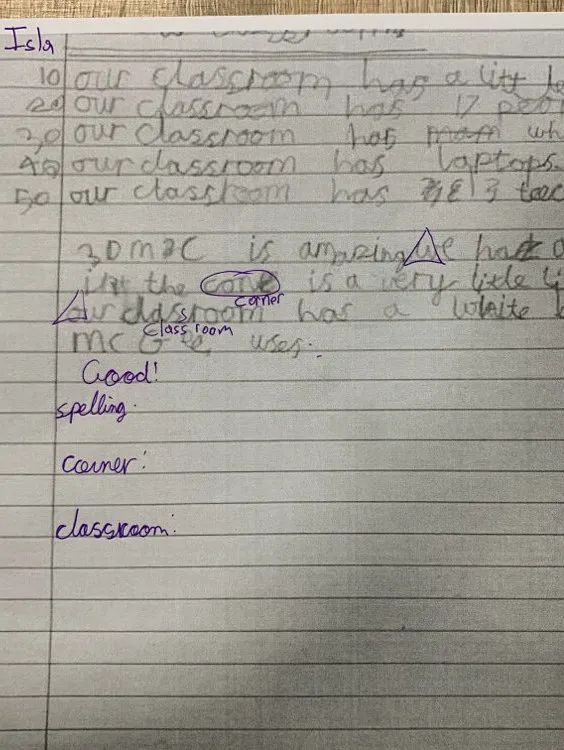 Isla
10 our classroom has a litt
20 our classroom has 17
30 our classroom has whi
40 our classroom has laptops.
50 our classroom has 3
3DM3C is amazing We had
the cone is a very little
our classroom has a white
uses.
corner
classroom
Good!
spelling.
corner:
classroom: